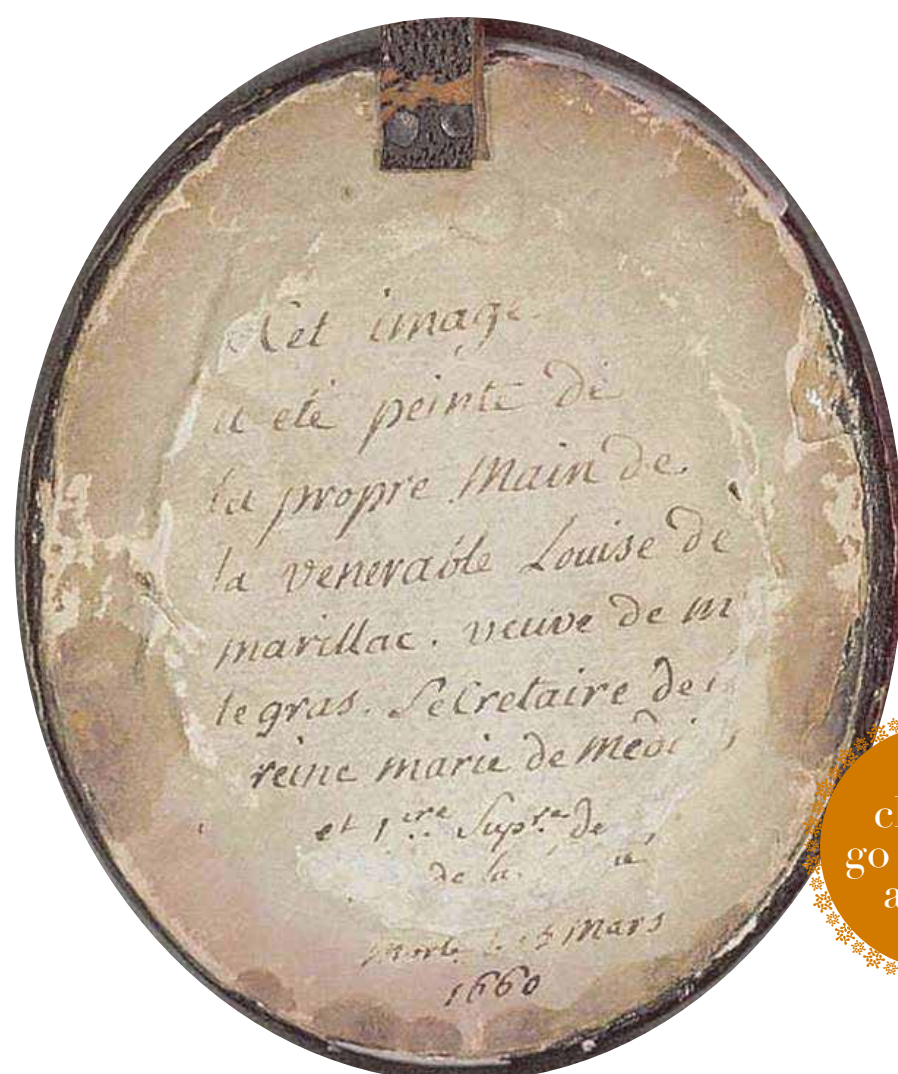 Cet image
a eté peinte de
la propre Main de
la venerable Louise de
marillac. veuve de m
le gras. Secretaire de
reine marie de medi
et 1.ere Sup.re de
de la
Morte le 15 Mars
1660
go
a